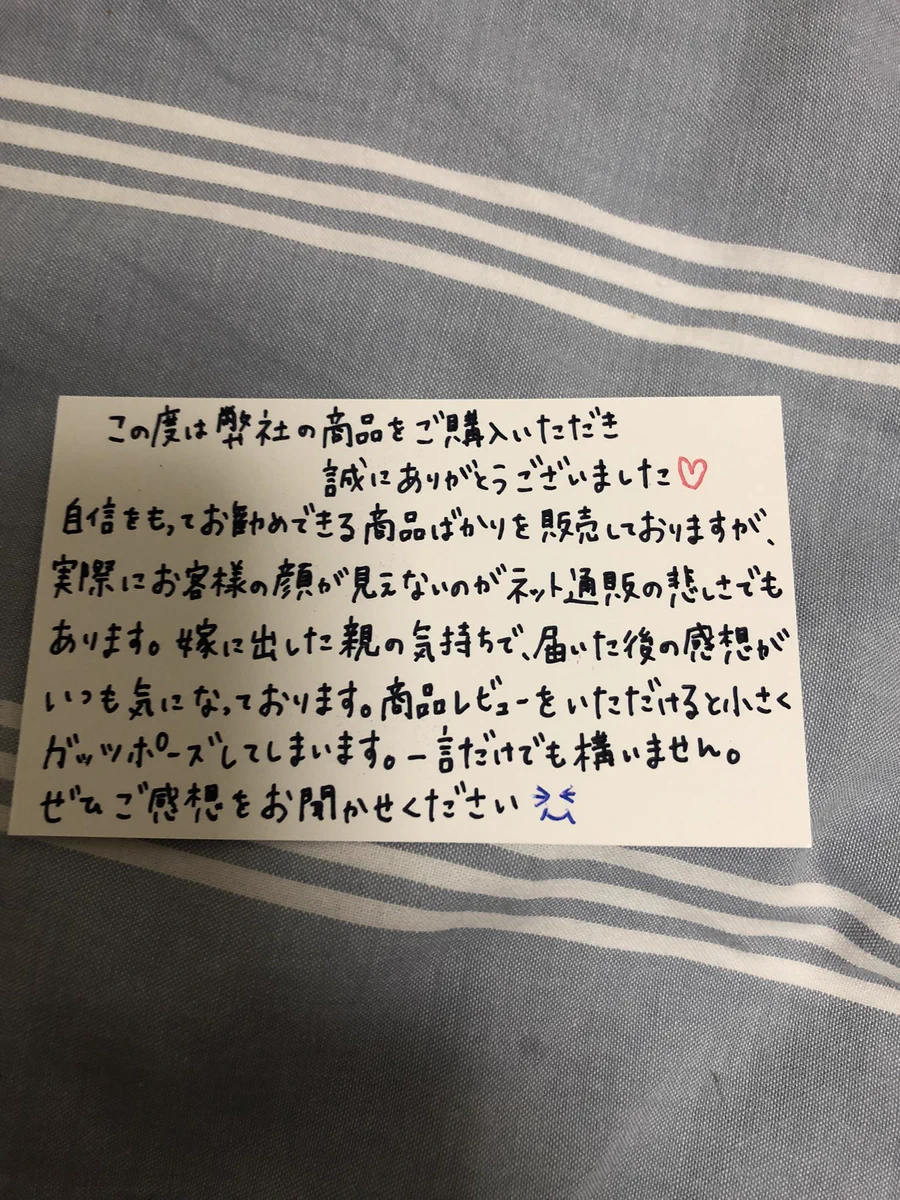 この度は弊社の商品をご購入いただき
誠にありがとうございました♡
自信をもってお勧めできる商品ばかりを販売しておりますが、
実際にお客様の顔が見えないのがネット通販の悲しさでも
あります。嫁に出した親の気持ちで、届いた後の感想が
いつも気になっております。商品レビューをいただけると小さく
ガッツポーズしてしまいます。一言だけでも構いません。
ぜひご感想をお聞かせください